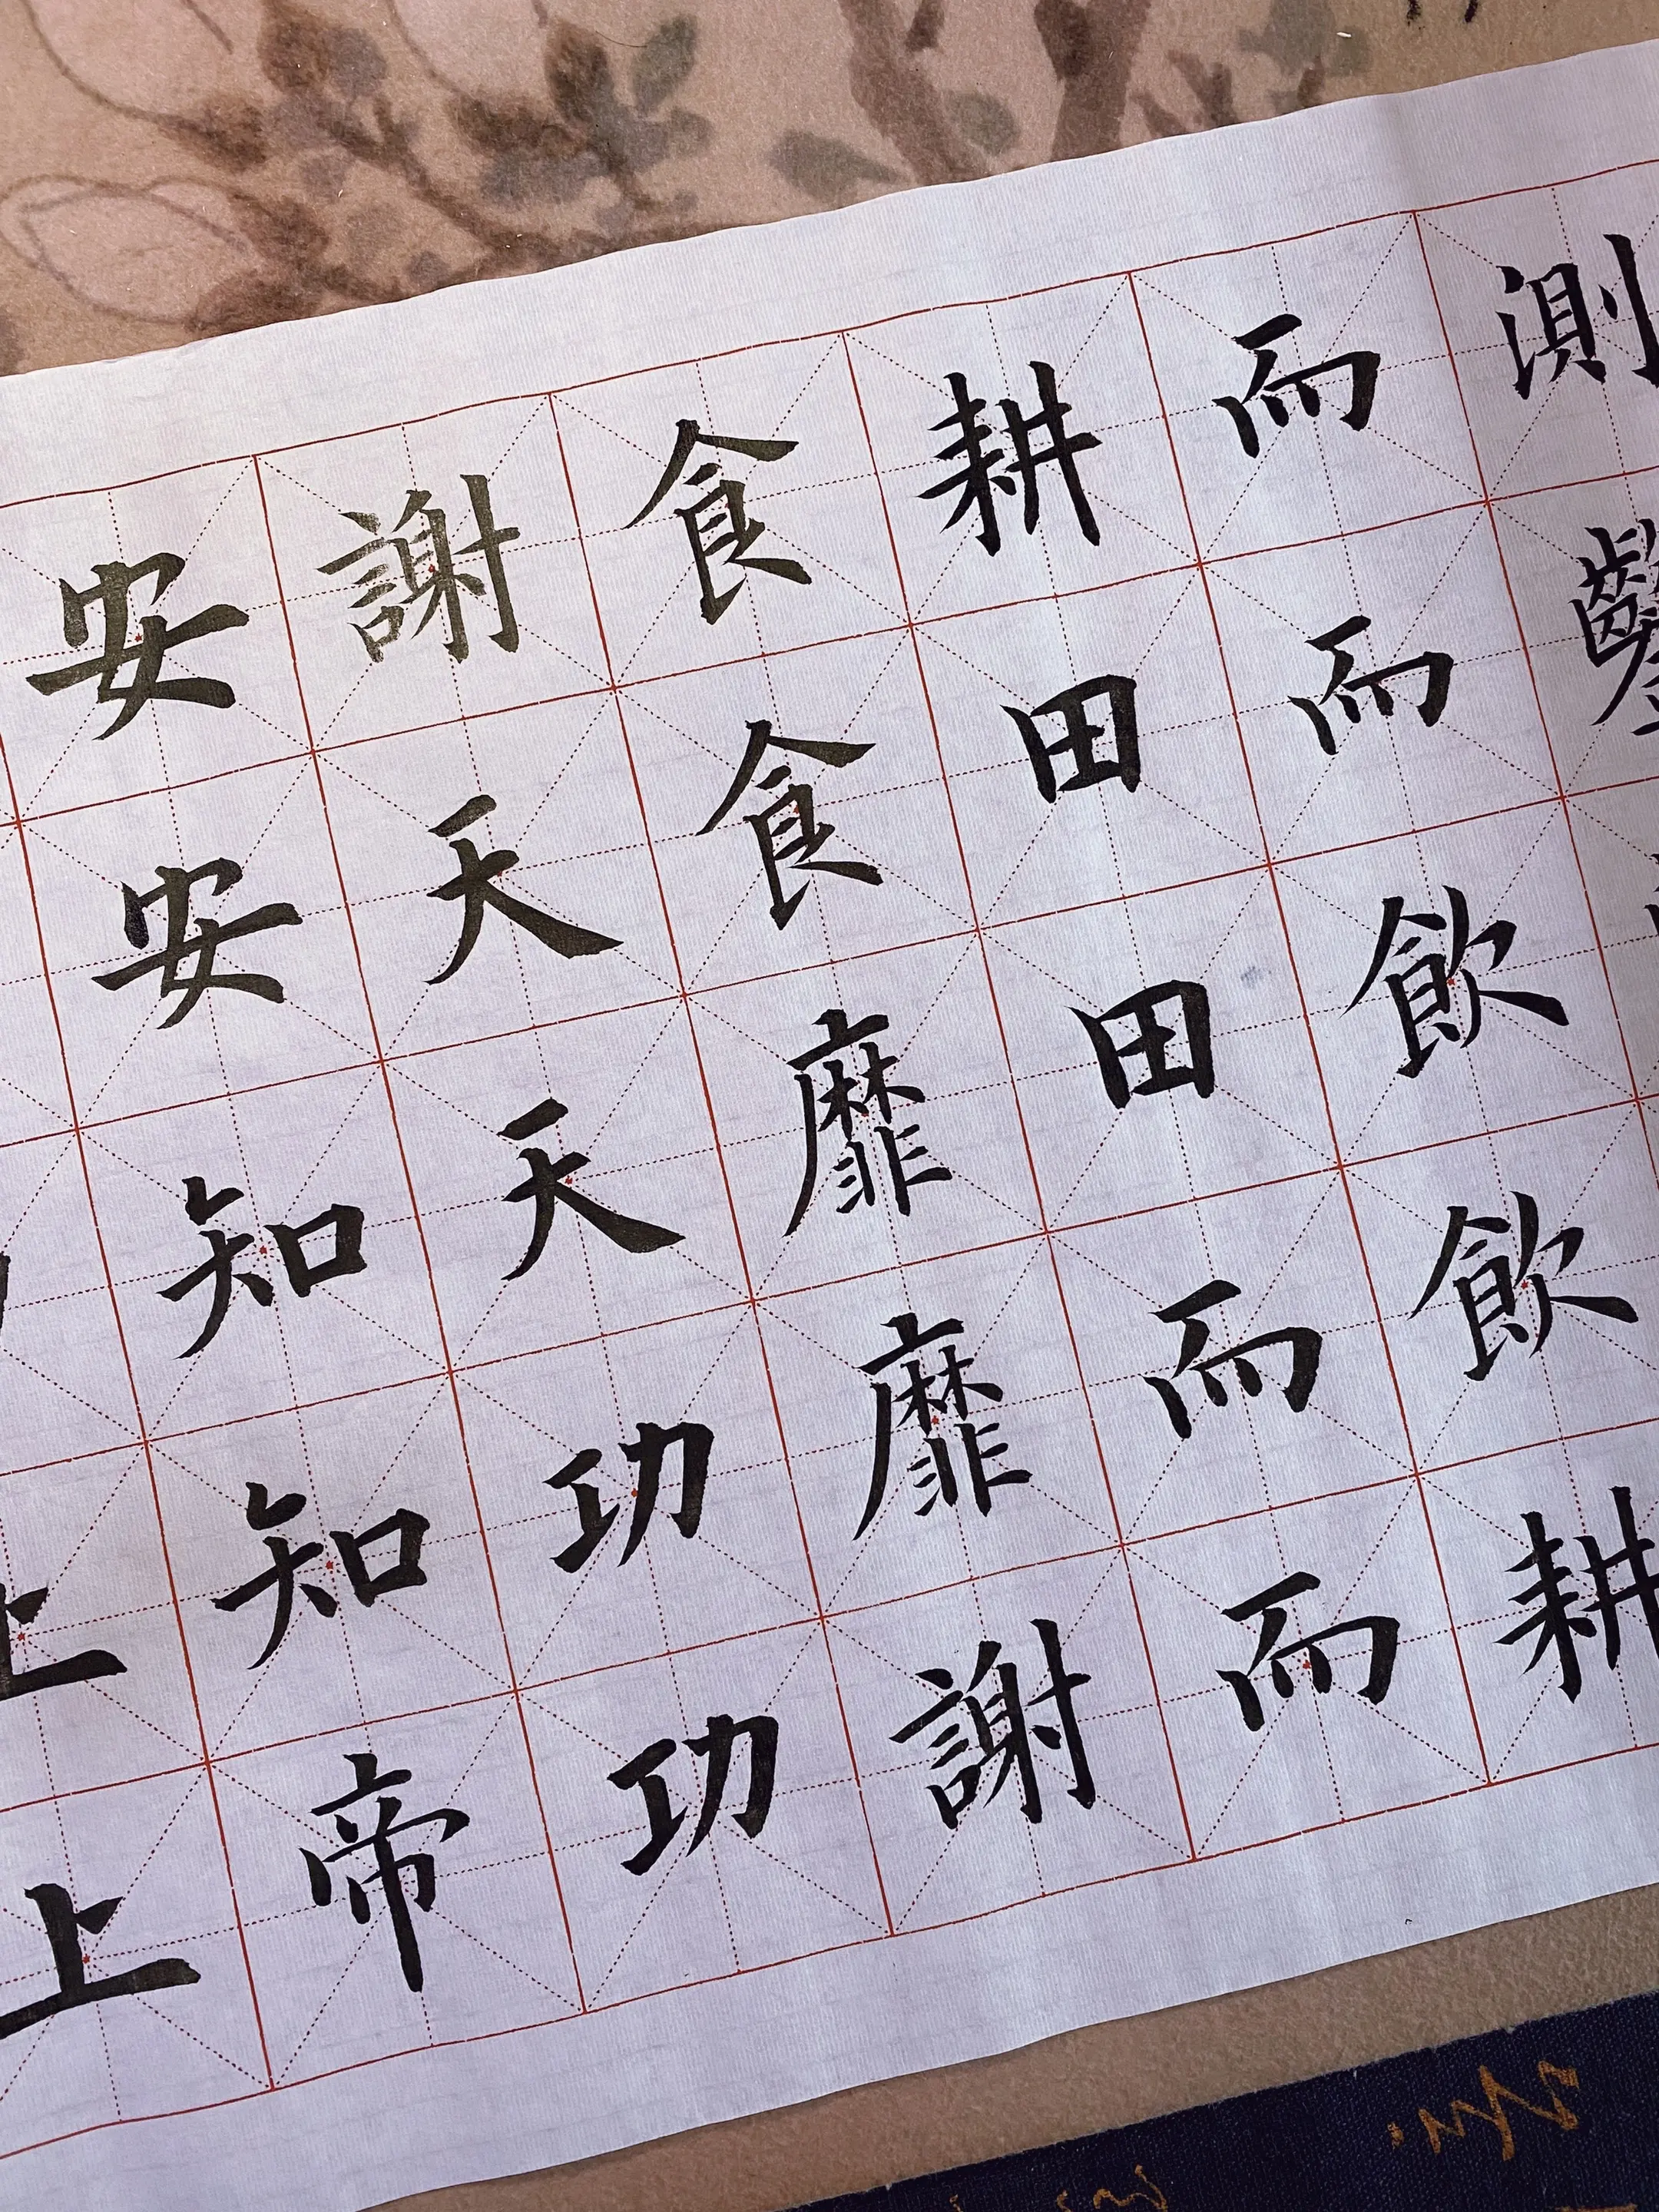 測
而而飲飲耕
耕田田而而
食食靡靡謝
謝天天功功
安安知知帝
上上